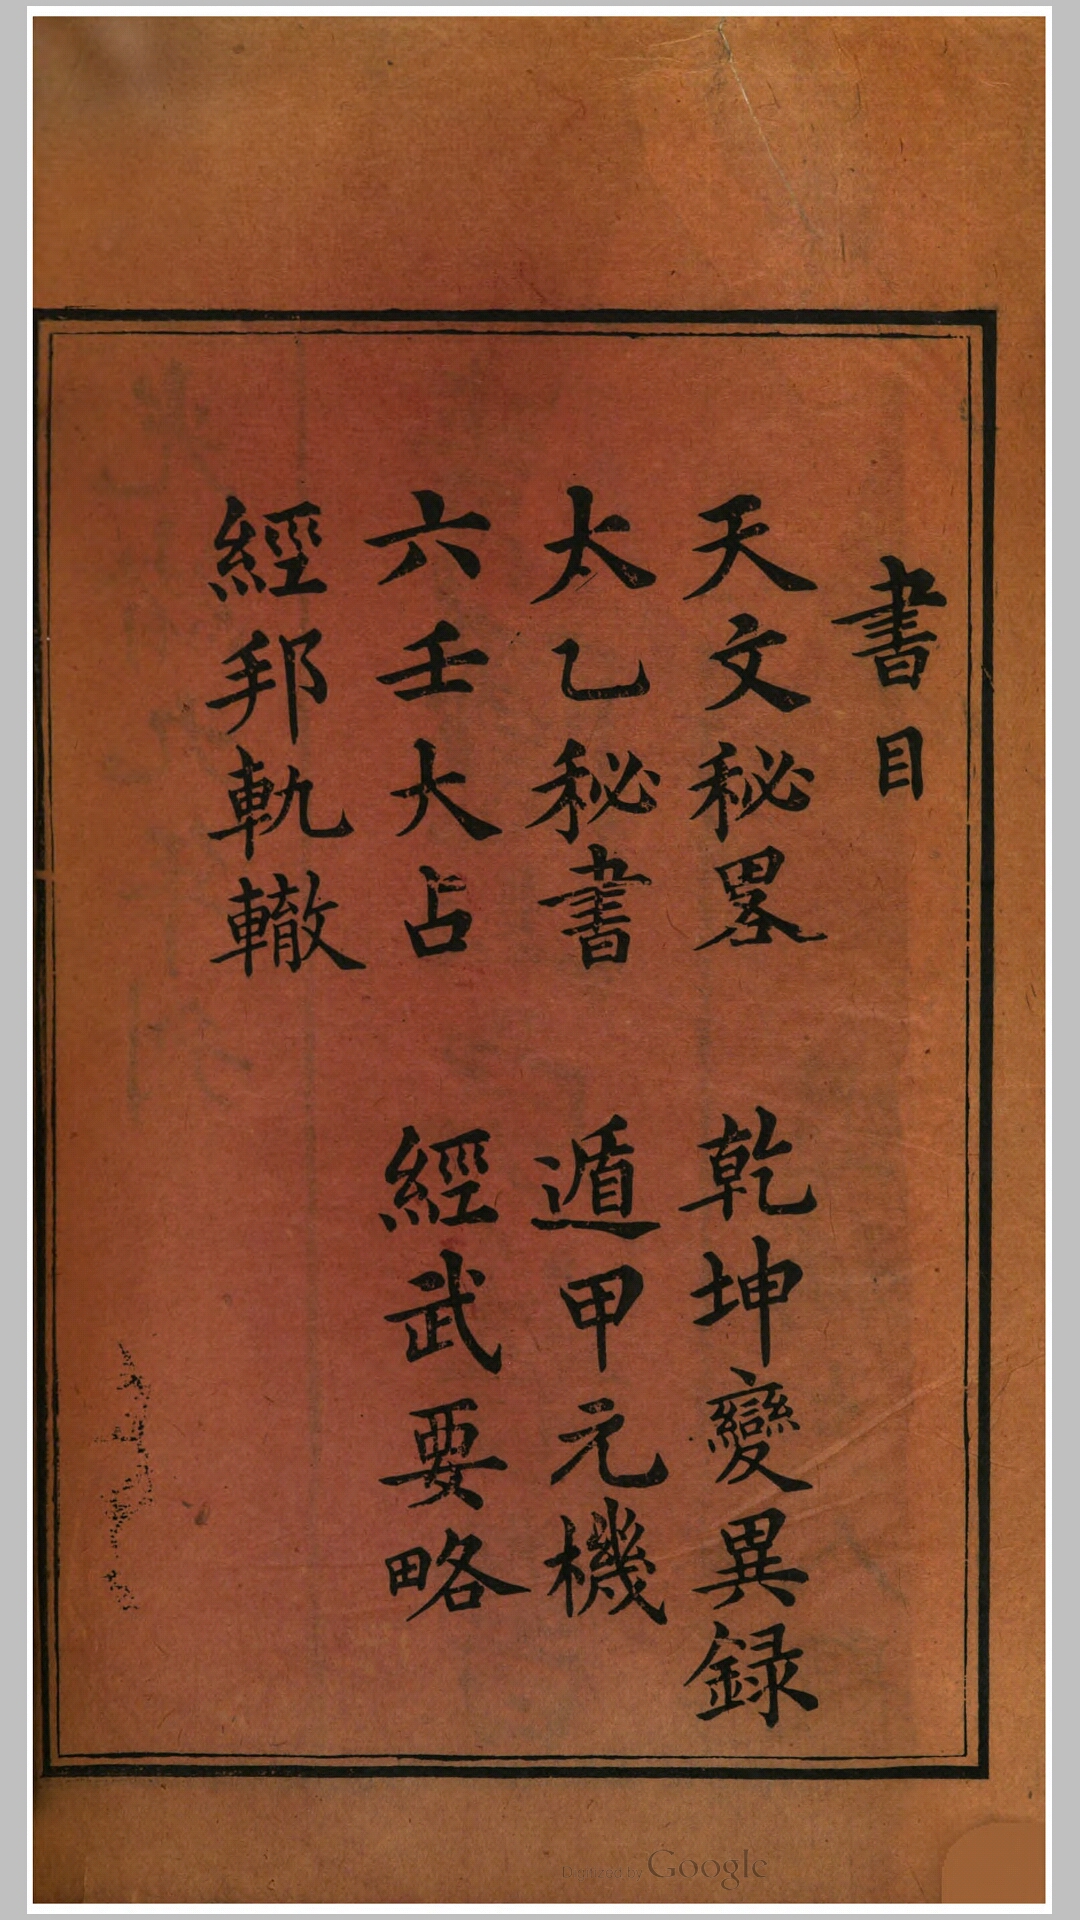 書目
天文秘畧　乾坤變異録
太乙秘書　遁甲元機
六壬大占　經武要略
經邦軌轍
Digitized by Google